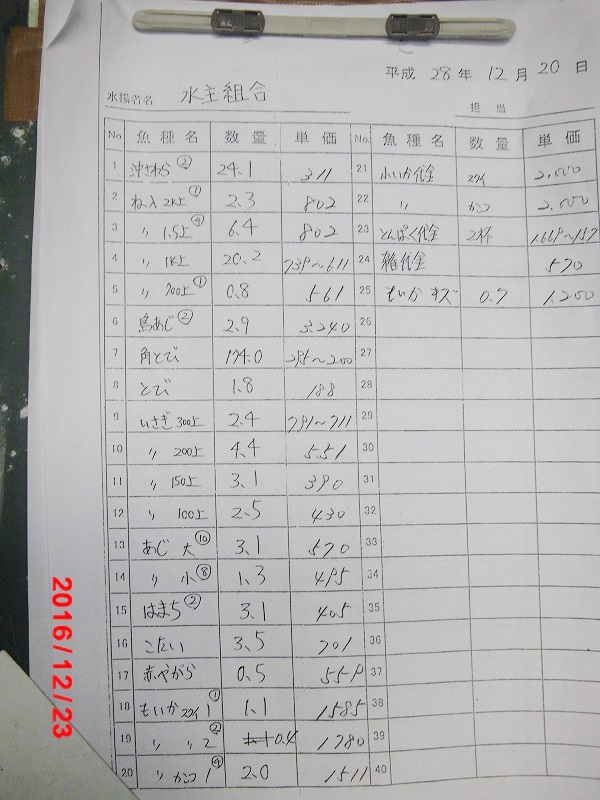 平成 28 年 12 月 20 日
水揚者名 水主組合
担当
No. 魚種名 数量 単価 No. 魚種名 数量 単価
1 沖さわら② 24.1 311 21 小いか代金 2,000
2 2K上① 2.3 802 22 〃 2,000
3 〃 1.5上④ 6.4 802 23 とんぼく代金 2杯
4 〃 1K上 20.2 739〜611 24 雑代金 570
5 〃 700上① 0.8 561 25 もいか キズ 0.7 1,200
6 島あじ② 2.9 3,240 26
7 角とび 174.0 295〜200 27
8 とび 1.8 188 28
9 いさぎ 300上 2.4 791〜711 29
10 〃 200上 4.4 551 30
11 〃 150上 3.1 390 31
12 〃 100上 2.5 430 32
13 あじ 大⑩ 3.1 570 33
14 〃 小⑧ 1.3 495 34
15 はまち② 3.1 405 35
16 こだい 3.5 701 36
17 赤やがら 0.5 559 37
18 もいか 1① 1.1 1585 38
19 〃 〃 2② 0.4 1780 39
20 〃 カンコ 1④ 2.0 1511 40
2016/12/23